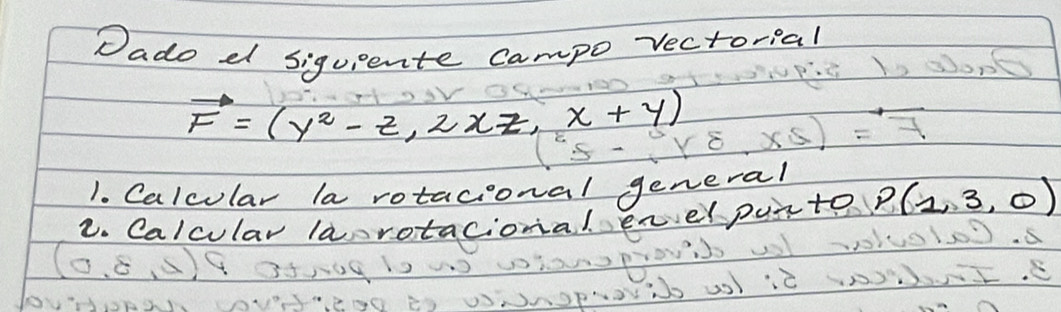 Dado el siguiente campo vectorial
F⃗ = (y² - z, 2xz, x + y)
1. Calcular la rotacional general
2. Calcular la rotacional en el punto P(1, 3, 0)